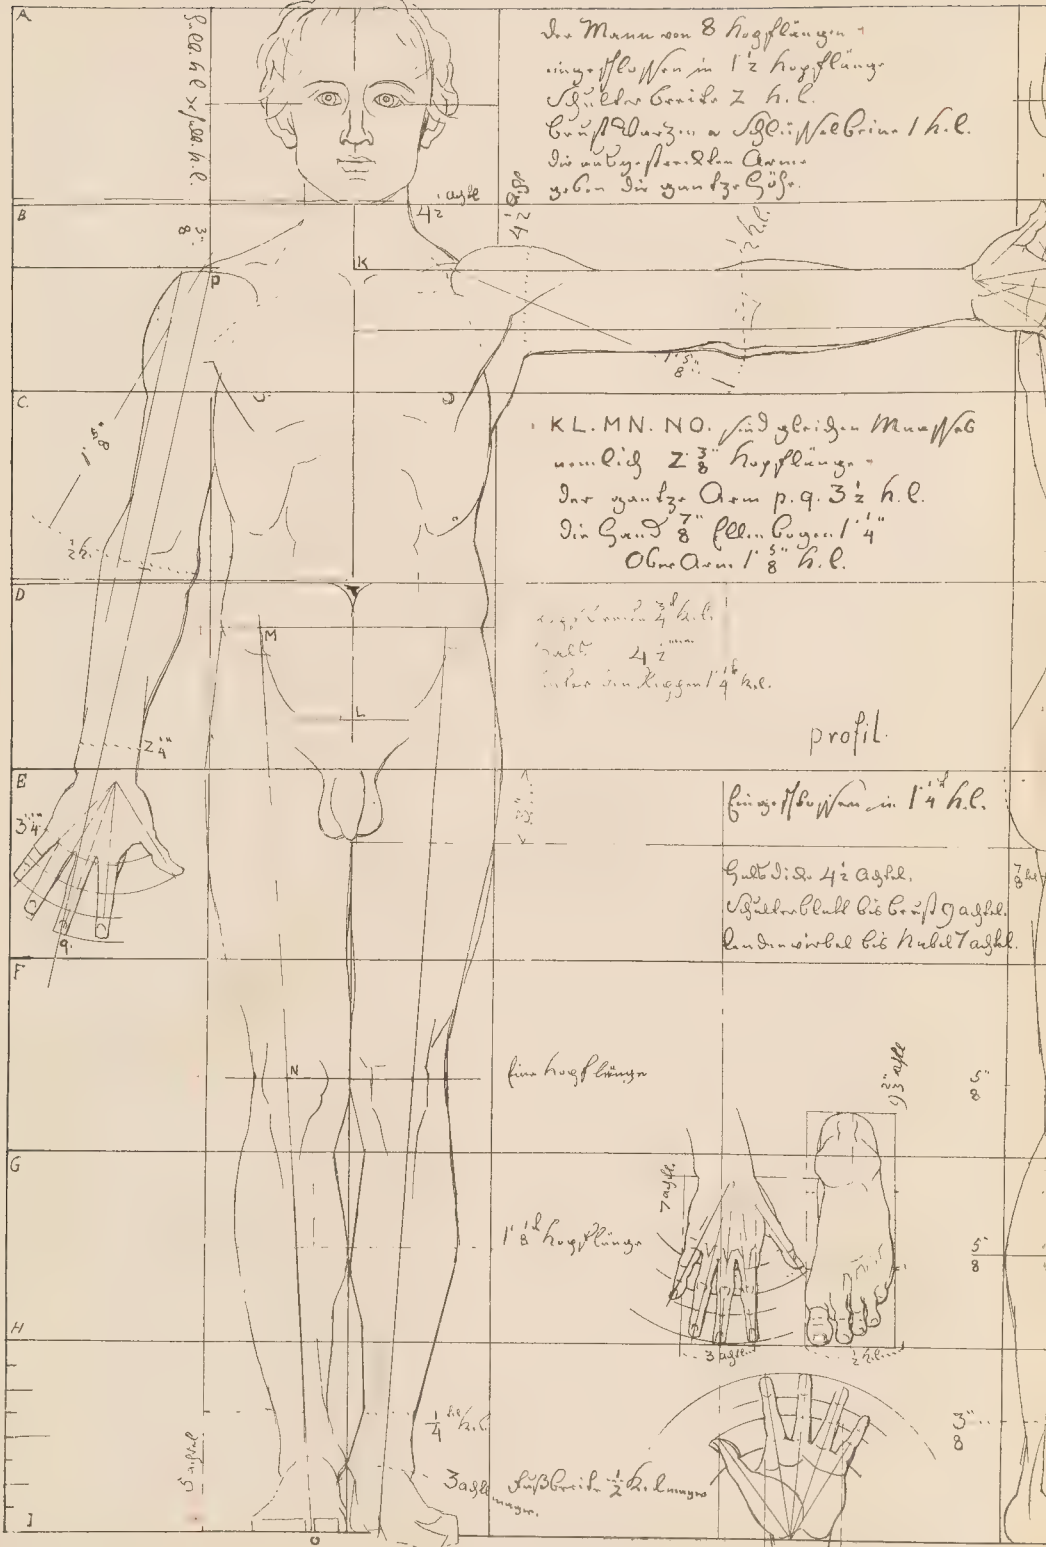 A
der Mann von 8 Kopflängen
eingeschlossen in 1½ Kopflänge
Schulter breite 2 k.l.
brust Warzen u Schlüsselbeine 1 k.l.
die ausgestreckten Arme
geben die gantze Höhe.
B
3''/8
4½ achtl
4½
½ k.l.
K
P
1' 5''/8
C.
1' 5''/8
KL. MN. NO. sind gleichen Maasses
nemlich 2 3''/8 Kopflänge
der gantze Arm p. q. 3½ k.l.
die Hand 7''/8 Ellenbogen 1' ¼''
Ober Arm 1' 5''/8 k.l.
½ k.
D
¾ k.l.
4½
1' ¼ k.l.
M
L
profil.
2 ¼'''
E
Eingeschlossen in 1' ¼ k.l.
3 ¼
3''
Hals dicke 4½ achtel.
Schulterblatt bis brust 9 achtel.
lendenwirbel bis Nabel 7 achtel.
7/8
q.
F
N
Eine Kopflänge
5''/8
G
7 achtl.
1' 1/8 Kopflänge
5/8
H
3 achtl.
½ k.l.
¼ k.l.
3''/8
5 achtel
3 achtl
mager.
Fußbreite ½ k.l. mager
I
O